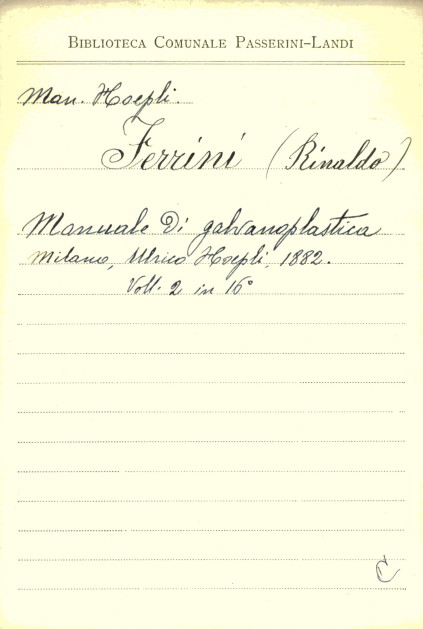 BIBLIOTECA COMUNALE PASSERINI-LANDI
Man. Hoepli.
Ferrini (Rinaldo)
Manuale Di galvanoplastica
Milano, Ulrico Hoepli, 1882.
Voll. 2 in 16°
C